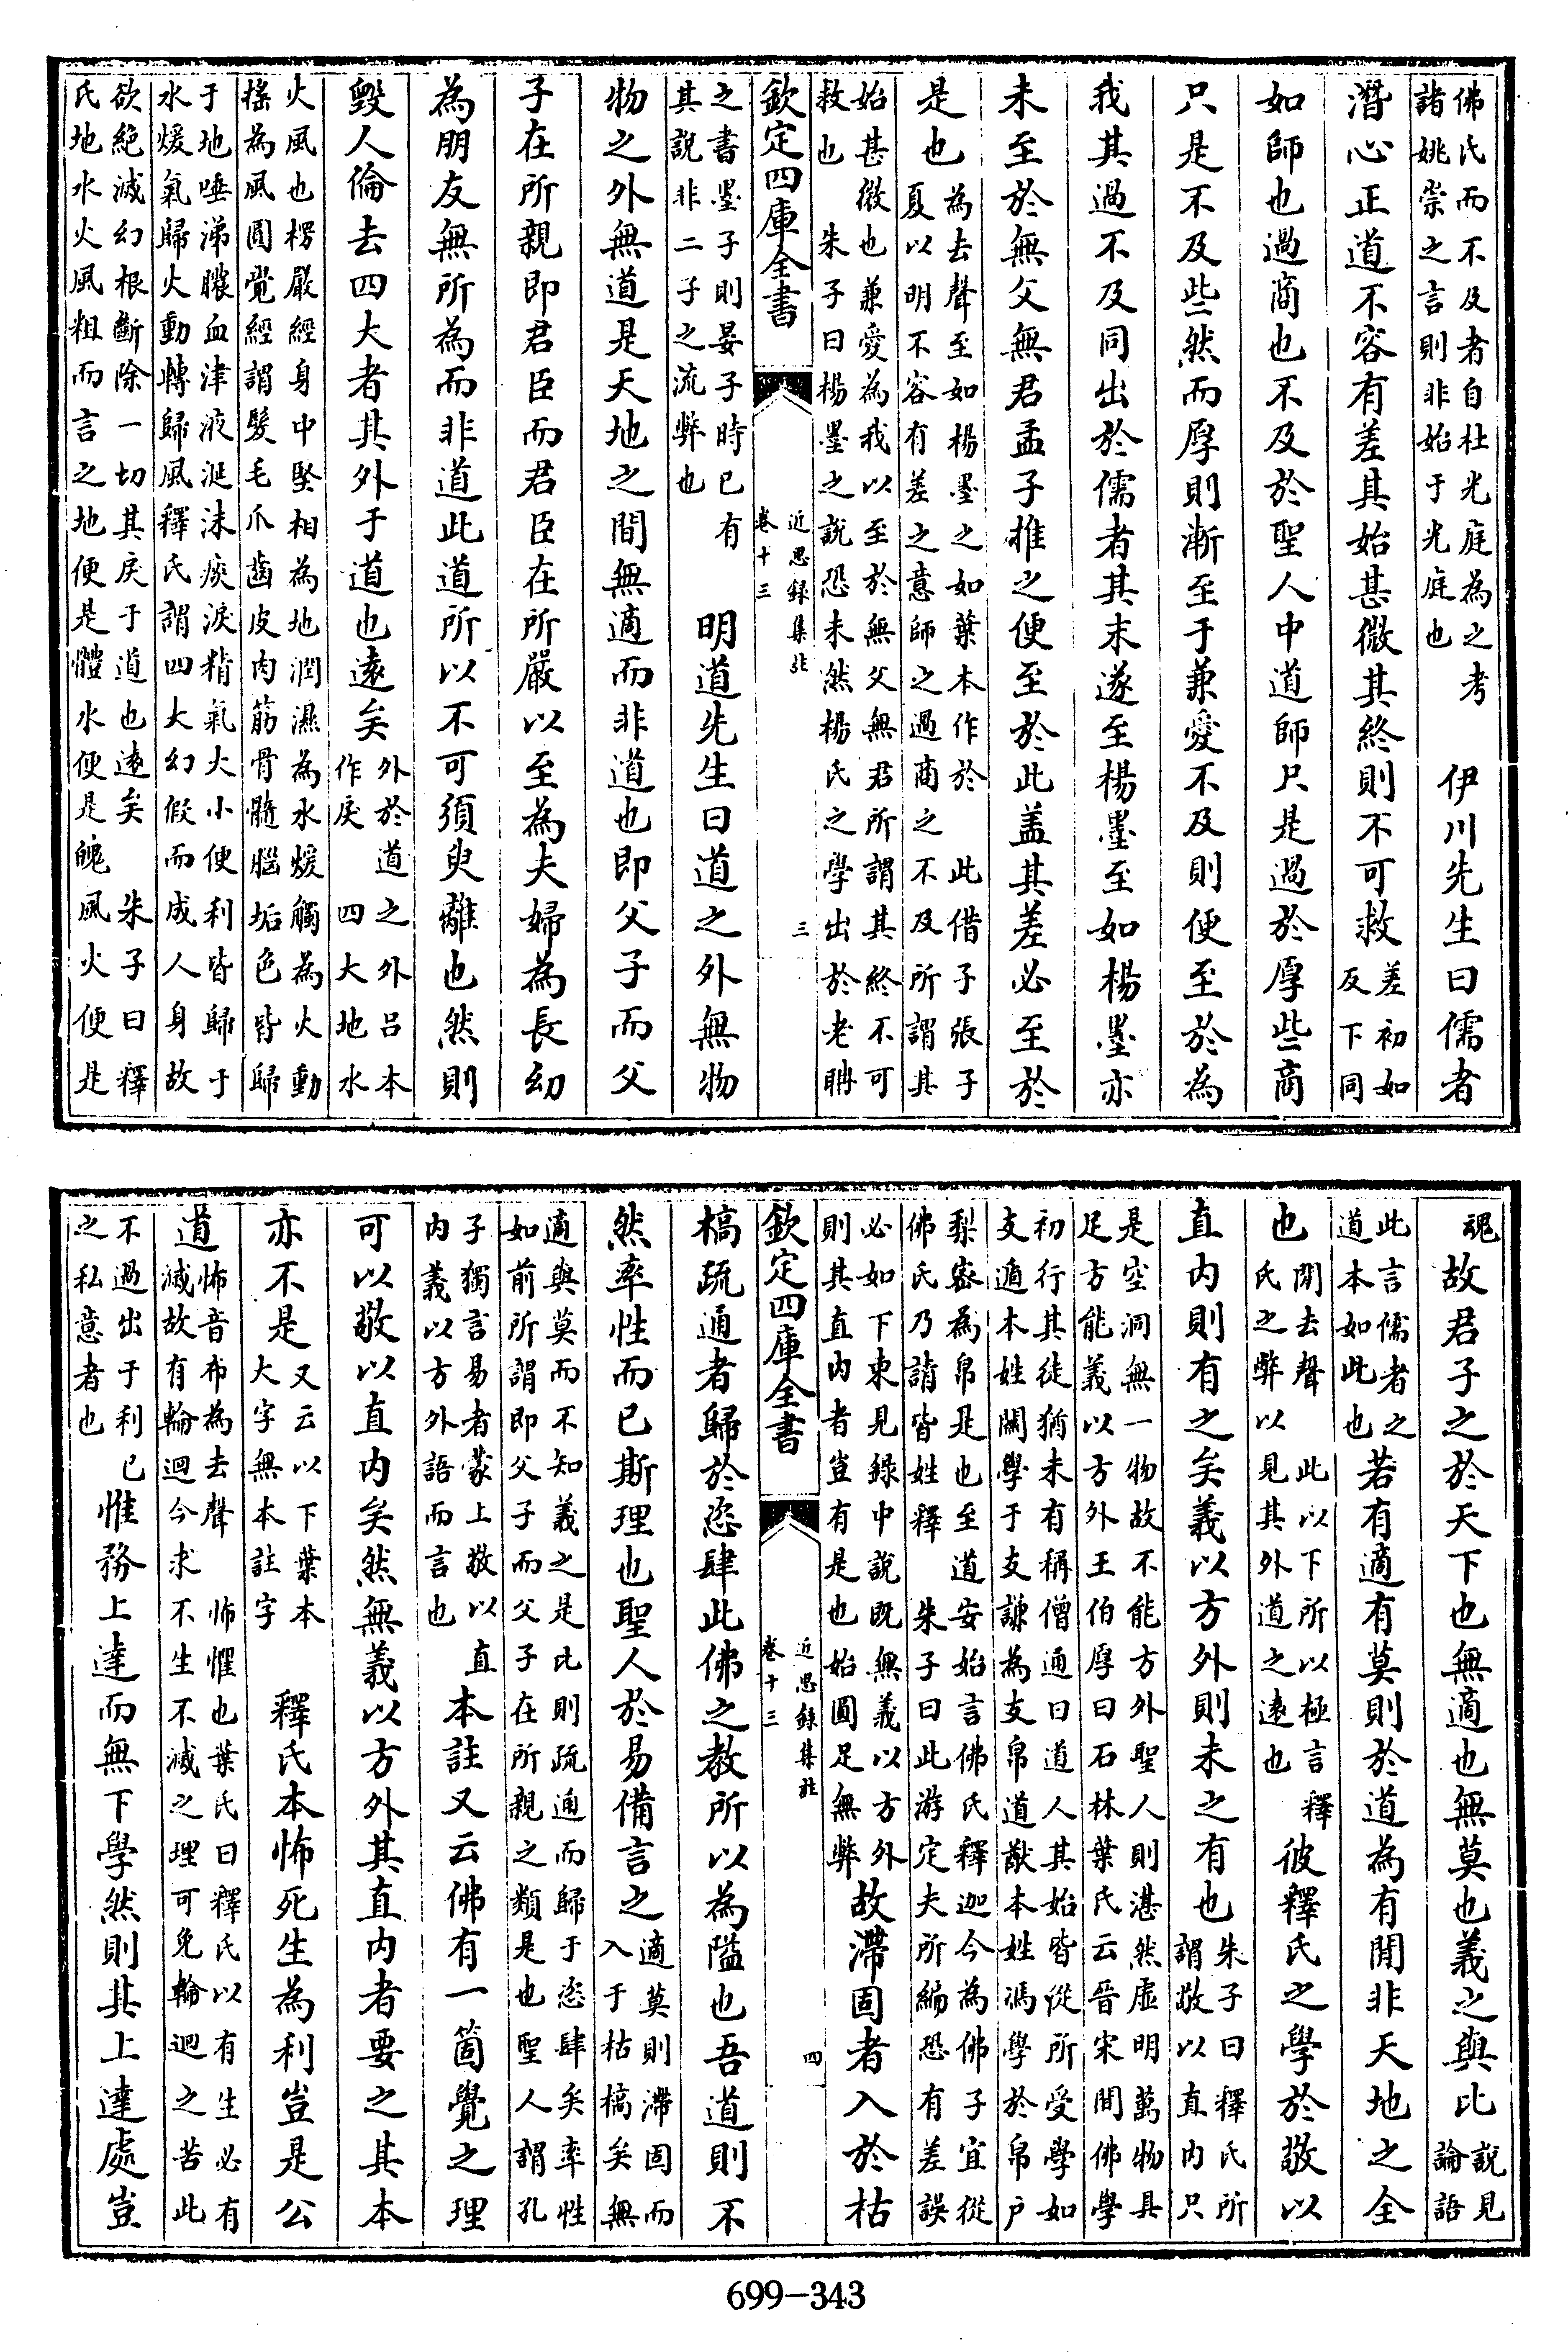 佛氏而不及者自杜光庭為之考
諸姚崇之言則非始于光庭也
伊川先生曰儒者
潛心正道不容有差其始甚微其終則不可救
差初如
反下同
如師也過商也不及於聖人中道師只是過於厚些商
只是不及些然而厚則漸至于兼愛不及則便至於為
我其過不及同出於儒者其末遂至楊墨至如楊墨亦
未至於無父無君孟子推之便至於此盖其差必至於
是也
為去聲至如楊墨之如葉本作於　此借子張子
夏以明不容有差之意師之過商之不及所謂其
始甚微也兼愛為我以至於無父無君所謂其終不可
救也　朱子曰楊墨之說恐未然楊氏之學出於老聃
欽定四庫全書
近思錄集註
卷十三
三
之書墨子則晏子時已有
其說非二子之流弊也
明道先生曰道之外無物
物之外無道是天地之間無適而非道也即父子而父
子在所親即君臣而君臣在所嚴以至為夫婦為長幼
為朋友無所為而非道此道所以不可須臾離也然則
毀人倫去四大者其外于道也遠矣
外於道之外吕本
作戾　四大地水
火風也楞嚴經身中堅相為地潤濕為水煖觸為火動
搖為風圓覺經謂髮毛爪齒皮肉筋骨髓腦垢色皆歸
于地唾涕膿血津液涎沫痰淚精氣大小便利皆歸于
水煖氣歸火動轉歸風釋氏謂四大幻假而成人身故
欲絶滅幻根斷除一切其戾于道也遠矣　朱子曰釋
氏地水火風粗而言之地便是體水便是魄風火便是
魂
故君子之於天下也無適也無莫也義之與比
說見
論語
此言儒者之
道本如此也
若有適有莫則於道為有間非天地之全
也
間去聲　此以下所以極言釋
氏之弊以見其外道之遠也
彼釋氏之學於敬以
直内則有之矣義以方外則未之有也
朱子曰釋氏所
謂敬以直内只
是空洞無一物故不能方外聖人則湛然虚明萬物具
足方能義以方外王伯厚曰石林葉氏云晉宋間佛學
初行其徒猶未有稱僧通曰道人其始皆從所受學如
支遁本姓關學于支謙為支帛道猷本姓馮學於帛户
梨宻為帛是也至道安始言佛氏釋迦今為佛子宜從
佛氏乃請皆姓釋　朱子曰此游定夫所編恐有差誤
必如下東見錄中說既無義以方外
則其直内者豈有是也始圓足無弊
故滯固者入於枯
欽定四庫全書
近思錄集註
卷十三
四
槁疏通者歸於恣肆此佛之教所以為隘也吾道則不
然率性而已斯理也聖人於易備言之
適莫則滯固而
入于枯槁矣無
適與莫而不知義之是比則疏通而歸于恣肆矣率性
如前所謂即父子而父子在所親之類是也聖人謂孔
子獨言易者蒙上敬以直
内義以方外語而言也
本註又云佛有一箇覺之理
可以敬以直内矣然無義以方外其直内者要之其本
亦不是
又云以下葉本
大字無本註字
釋氏本怖死生為利豈是公
道
怖音布為去聲　怖懼也葉氏曰釋氏以有生必有
滅故有輪迴今求不生不滅之理可免輪迴之苦此
不過出于利已
之私意者也
惟務上達而無下學然則其上達處豈
699-343